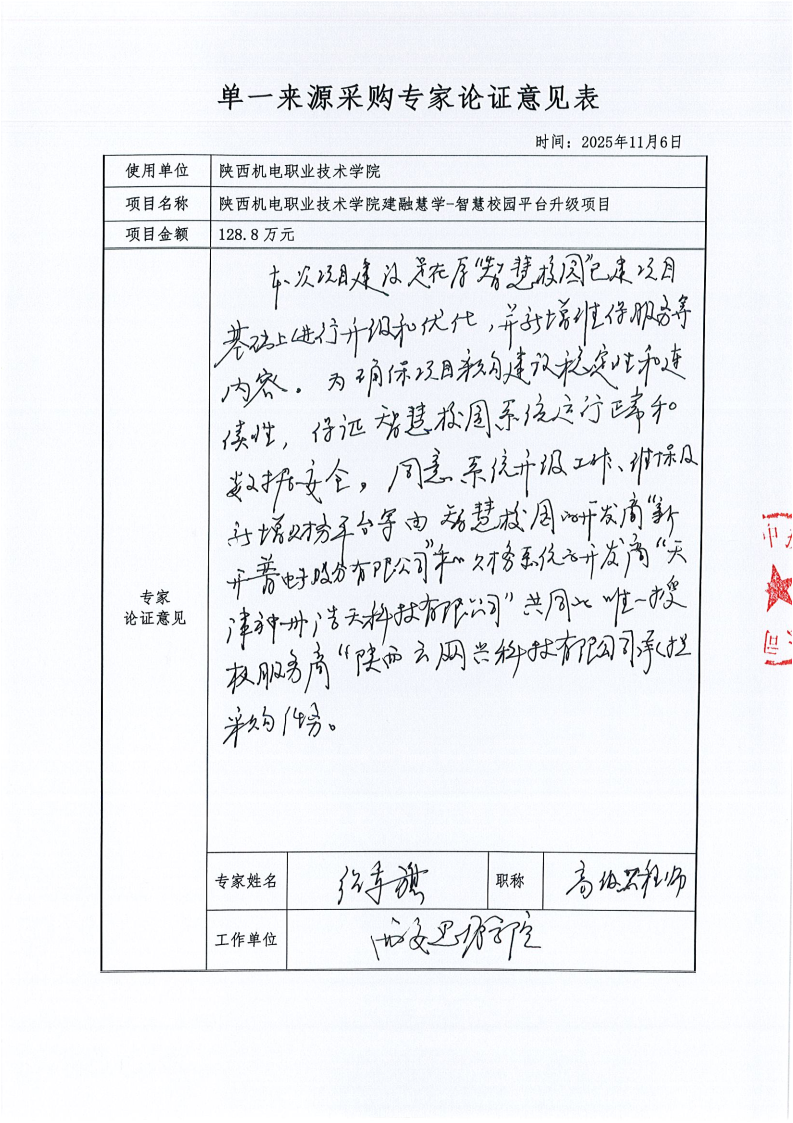 单一来源采购专家论证意见表
时间：2025年11月6日
使用单位 陕西机电职业技术学院
项目名称 陕西机电职业技术学院建融慧学-智慧校园平台升级项目
项目金额 128.8万元
专家
论证意见
本次项目建设是在原“智慧校园”已建项目
基础上进行升级和优化，并新增维保服务等
内容。为确保项目采购建设稳定性和连
续性，保证智慧校园系统运行正常和
数据安全。同意系统升级工作、维保及
新增财务平台等由智慧校园的开发商“新
开普电子股份有限公司”和财务系统的开发商“天
津神州浩天科技有限公司”共同的唯一授
权服务商“陕西云网兴科技有限公司承担
采购任务。
专家姓名 职称 高级工程师
工作单位